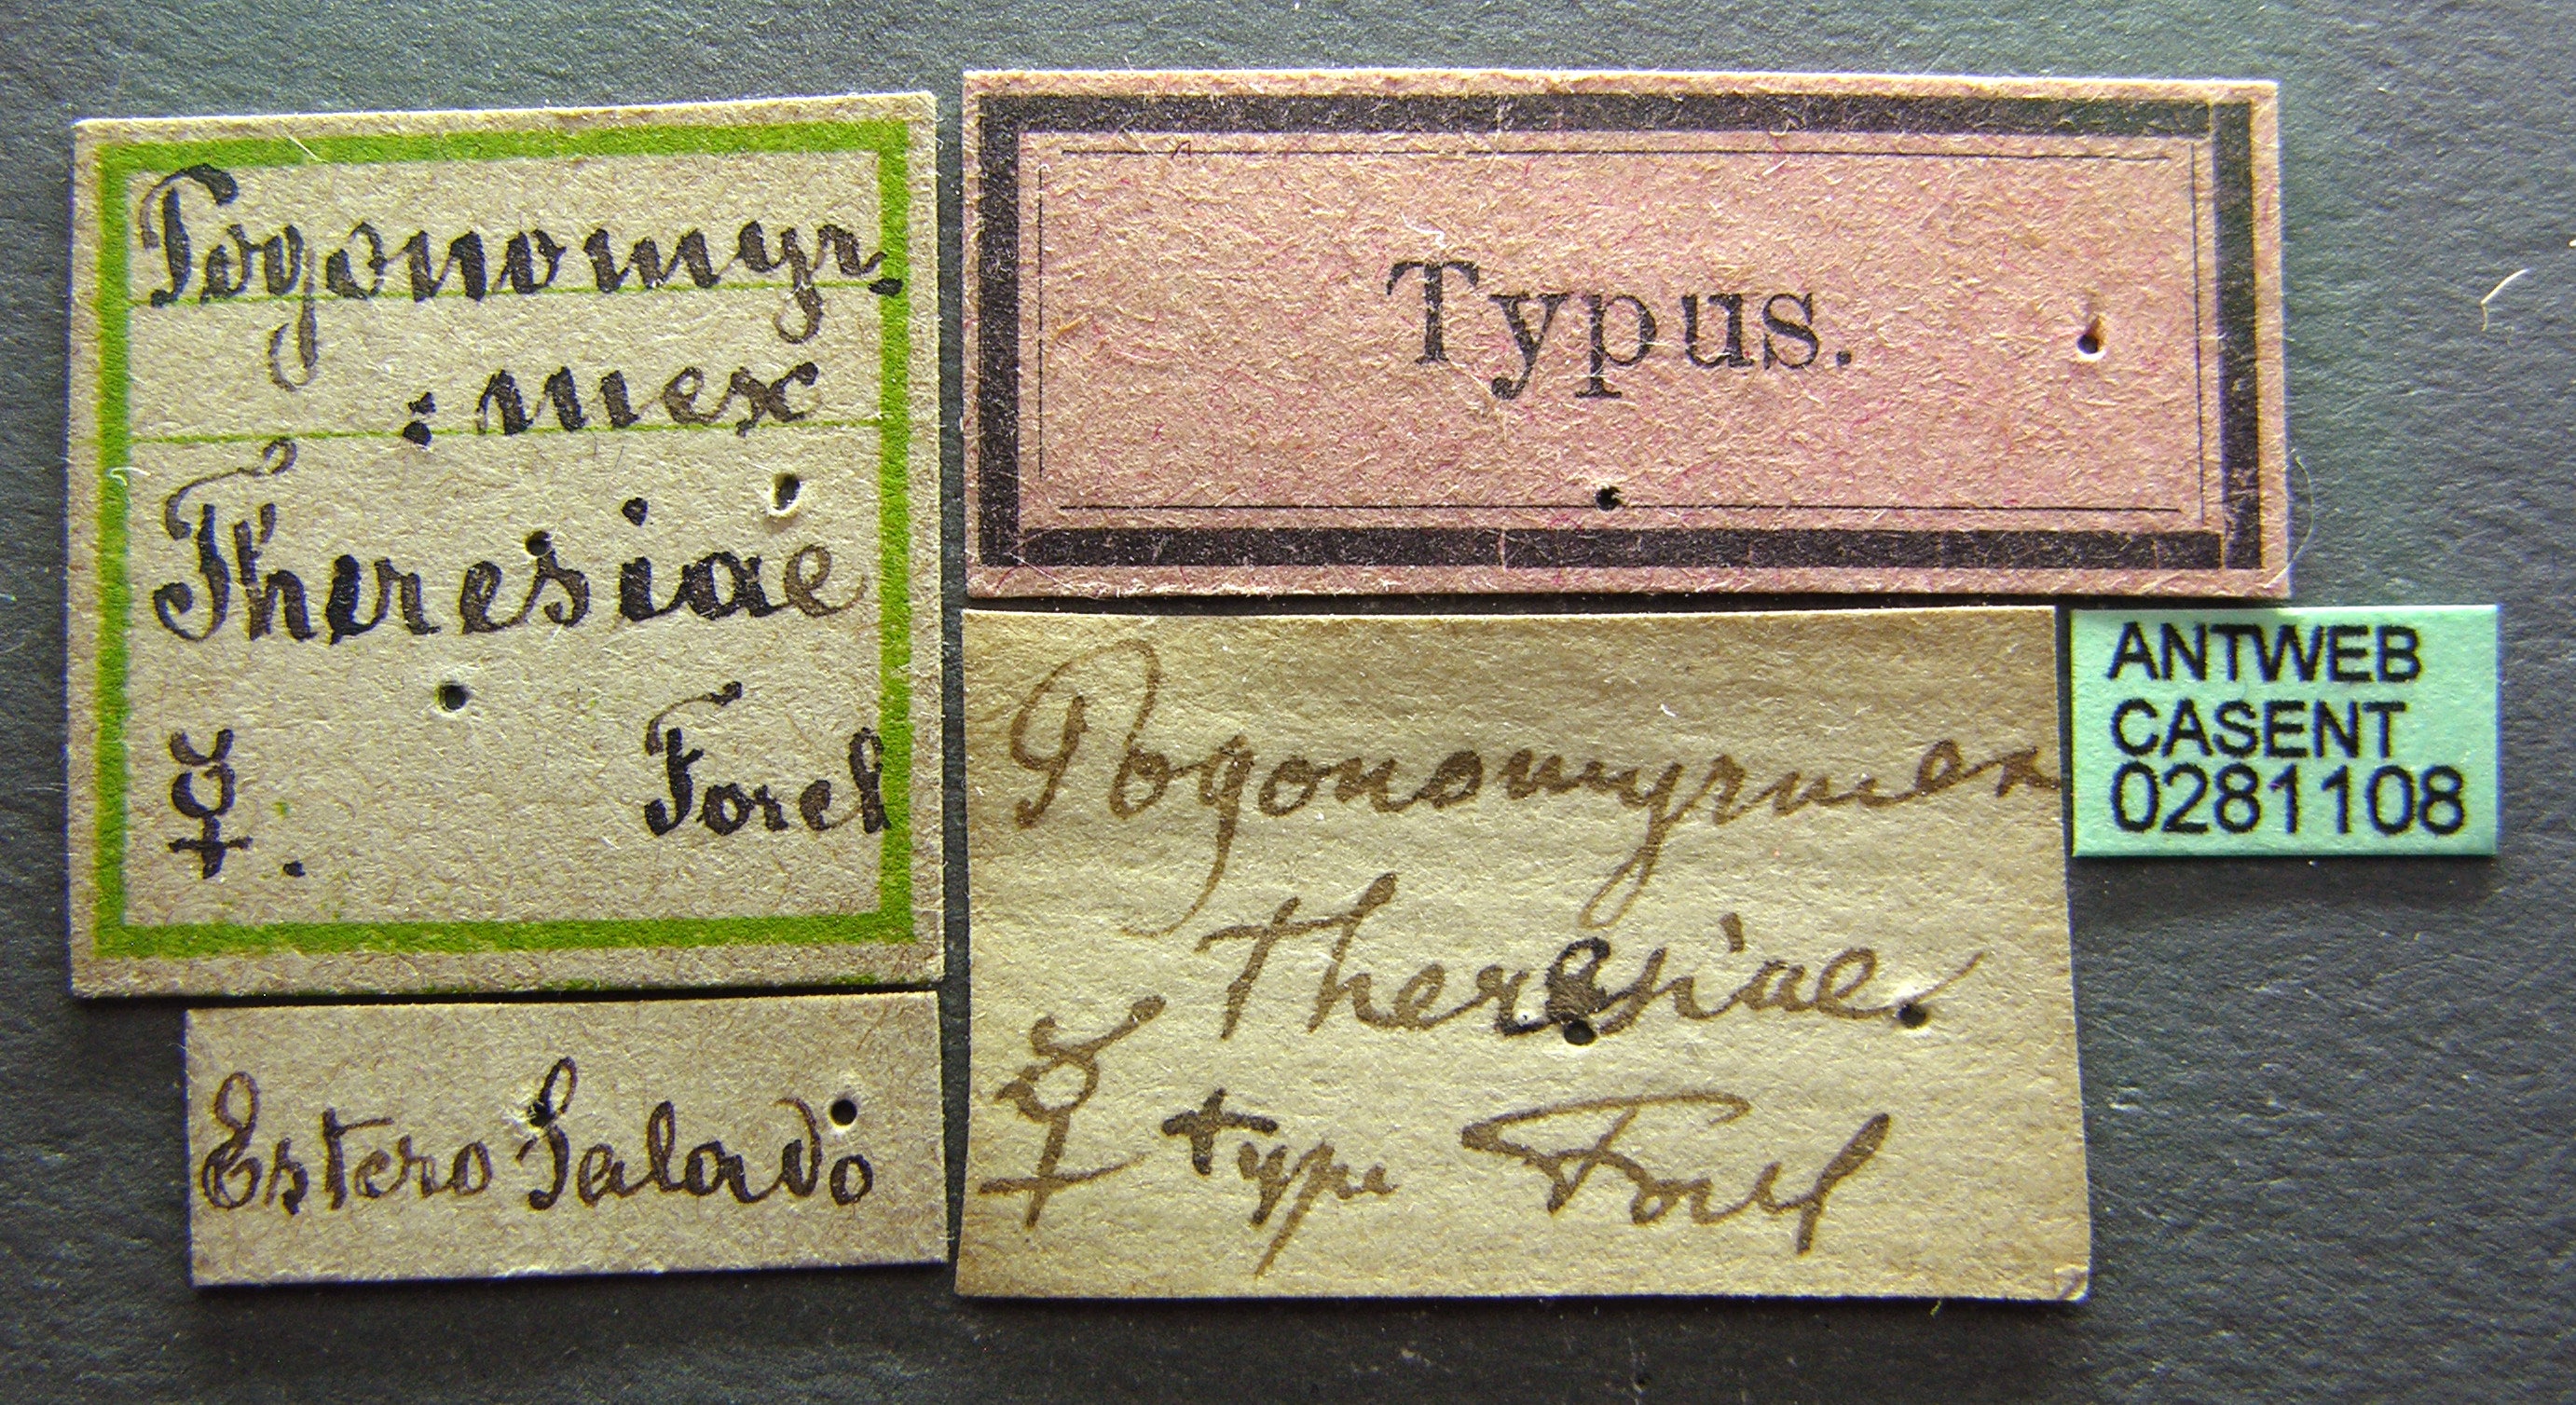 Pogonomyr.
:mex
Theresiae
☿. Forel
Estero Salado
Typus.
Pogonomyrmex
Theresiae.
☿ type Forel
ANTWEB
CASENT
0281108